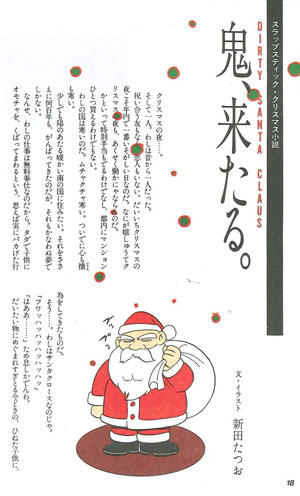 スラップスティック・クリスマス小説
DIRTY SANTA CLAUS
鬼、来たる。
クリスマスの夜……。
そして一人。わしは昔から一人だった。
祝い合う友もなく恋人もいない。だいいちクリスマスの
夜こそ年内で一番いそがしい日なのだ。なにが嬉しゅうてク
リスマスの夜も、あくせく働かにゃならないのだ。
かといって特別手当もでるわけでなし。都内にマンション
ひとつ買えるわけでもない。
わしの国は寒いのだ。ムチャクチャ寒い。ついでに心も懐
も寒い。
少しでも陽のあたる暖かい南の国に住みたい。それをささ
えに何百年も、がんばってきたのだが、それもかなわぬ夢で
しかない。
なんせ、わしの仕事は無料奉仕なのだから。タダで子供に
オモチャを、くばってまわるという、思えば実にバカげた行
為をしてきたものだ。
そう……。わしはサンタクロースなのじゃ。
「フワッハッハッハッハッハッ」
「はああ……」ため息しかでんわ。
だいたい物にめぐまれすぎとる今どきの、ひねた子供に、
文・イラスト 新田たつお
18